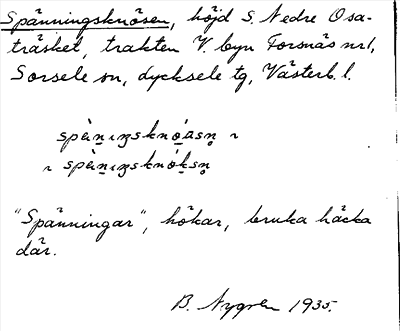 Spänningsknösen, höjd S. Nedre Osa-
träsket, trakten V. byn Forsnäs nr 1,
Sorsele sn, Lycksele tg, Västerb. l.
"Spänningar", hökar, bruka häcka
där.
B. Nygren 1935.